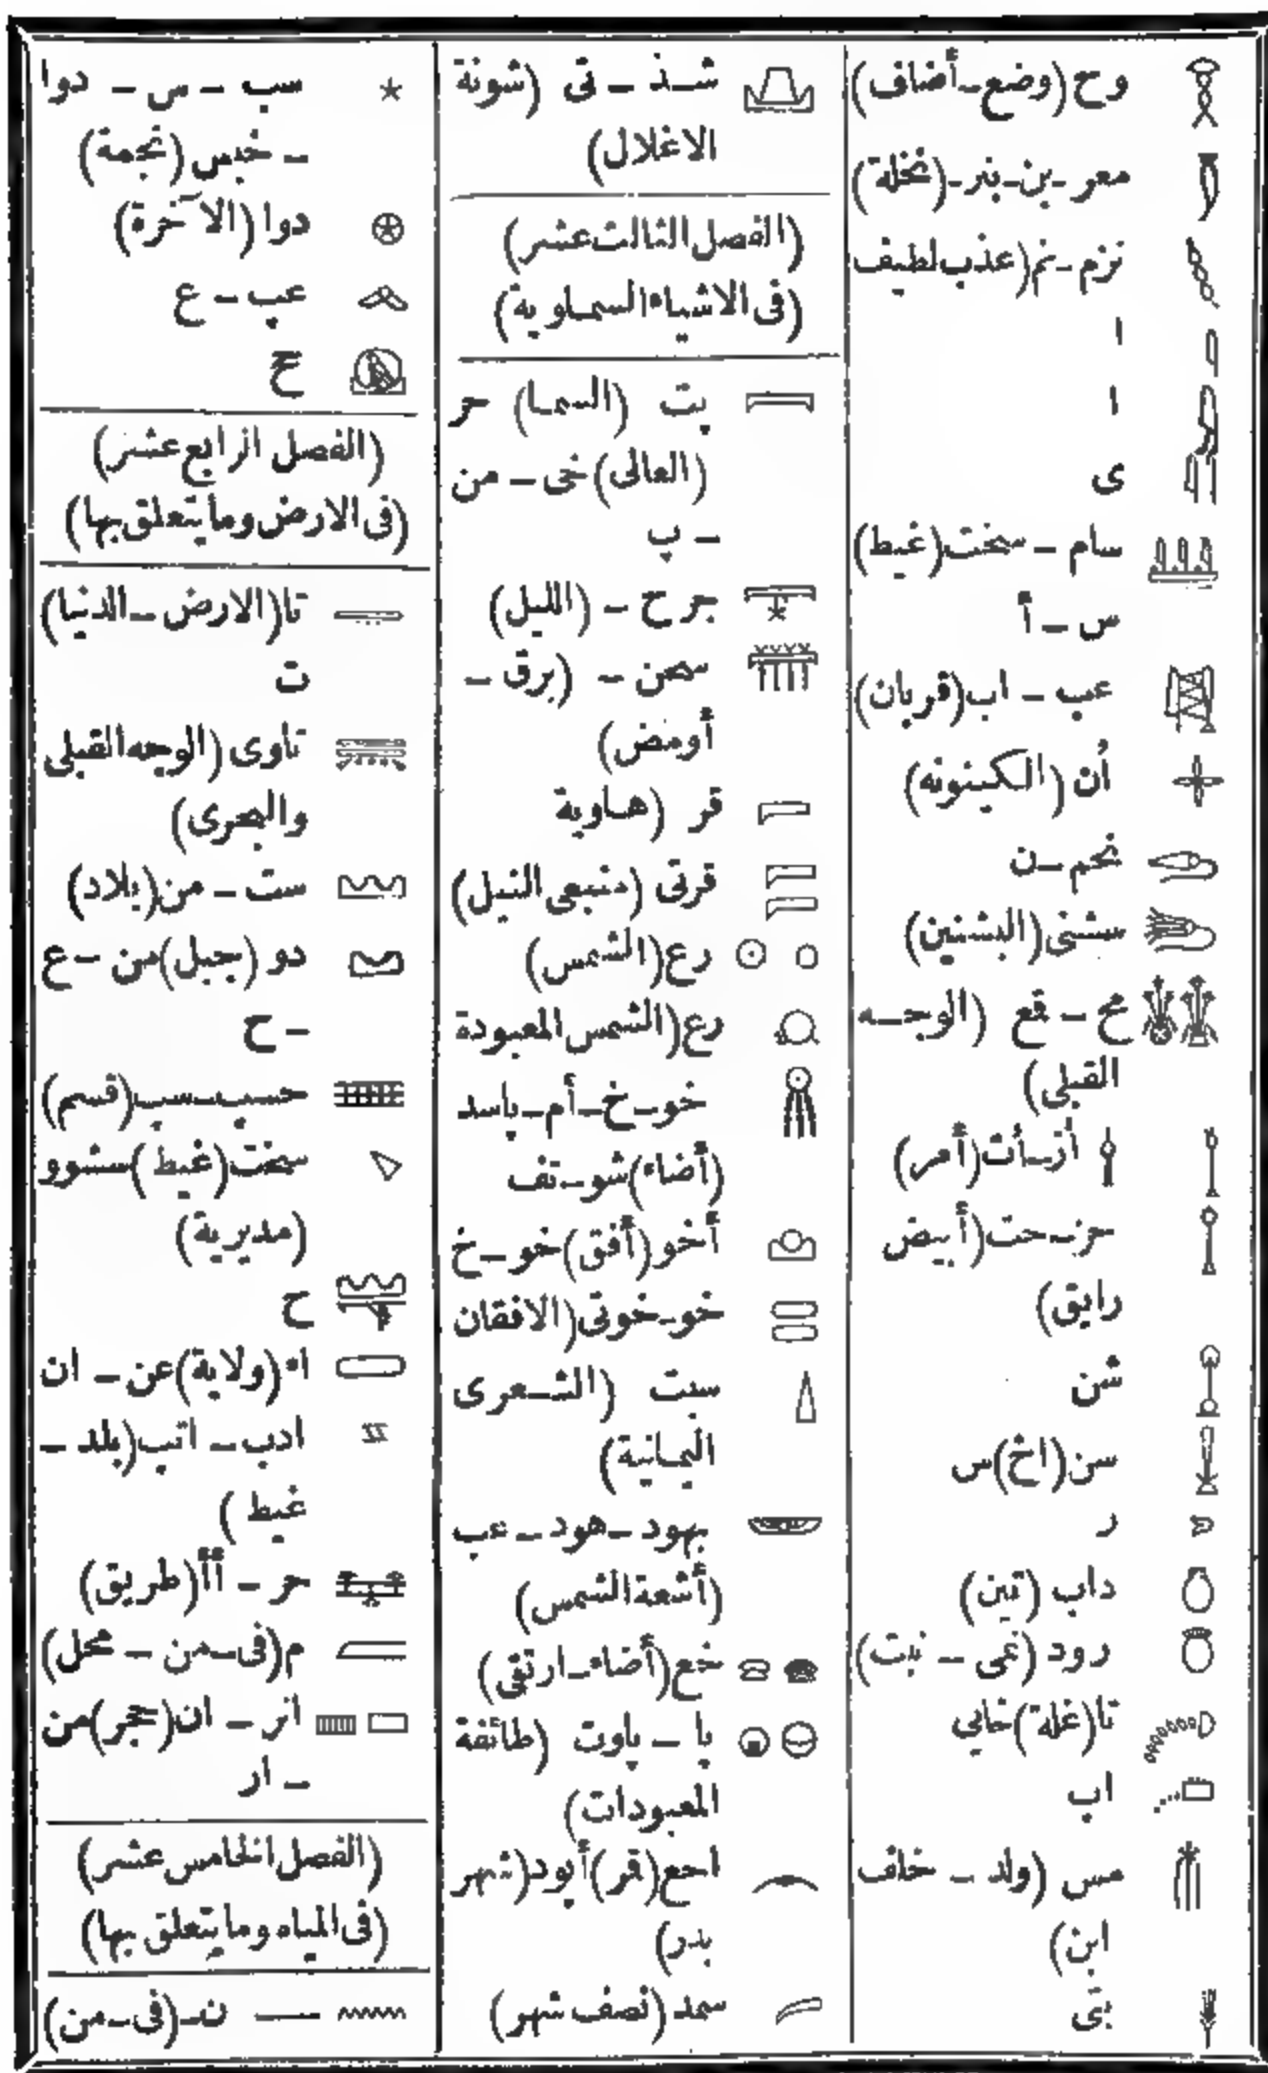 وح (وضع-أضاف)
معر-بن-بنر-(نخلة)
نزم-نم (عذب لطيف
ا
ا
ى
سام - سخت (غيط)
س - أ
عب - اب (قربان)
أن (الكينونه)
نحم-ن
سشنى (البشنين)
مح - قع (الوجه
القبلى)
أز-أث (أمر)
حز-حت (أبيض
رايق)
شن
سن (اخ) س
ر
داب (تين)
رود (نمى - نبت)
تا (غلة) خابي
اب
مس (ولد - خلف
ابن)
بتى
شـذ - تى (شونة
الاغلال)
(الفصل الثالث عشر)
(فى الاشياء السماوية)
پت (السما) حر
(العالى) خى - من
- پ
جرح - (الليل)
سحن - (برق -
أومض)
قر (هاوية
قرتى (منبعى النيل)
رع (الشمس)
رع (الشمس المعبودة
خو-خ-أم-پاسد
(أضاء) شو-تف
أخو (أفق) خو-خ
خو-خوتى (الافقان
سبت (الشعرى
اليمانية)
بهود-هود-عب
(أشعة الشمس)
خع (أضاء-ارتقى)
پا - پاوت (طائفة
المعبودات)
احع (قمر) أپود (شهر
بدر)
سمد (نصف شهر)
سب - س - دوا
- خبس (نجمة)
دوا (الآخرة)
عپ - ع
ح
(الفصل الرابع عشر)
(فى الارض وما يتعلق بها)
تا (الارض - الدنيا)
ت
تاوى (الوجه القبلى
والبحرى)
ست - من (بلاد)
دو (جبل) من - ع
- ح
حسب-سپ (قسم)
سخت (غيط) سشوو
(مديرية)
ح
اء (ولاية) عن - ان
ادب - اتب (بلد -
غيط)
حر - أأ (طريق)
م (فى-من - محل)
انر - ان (حجر) من
- ار
(الفصل الخامس عشر)
(فى المياه وما يتعلق بها)
ن-(فى-من)